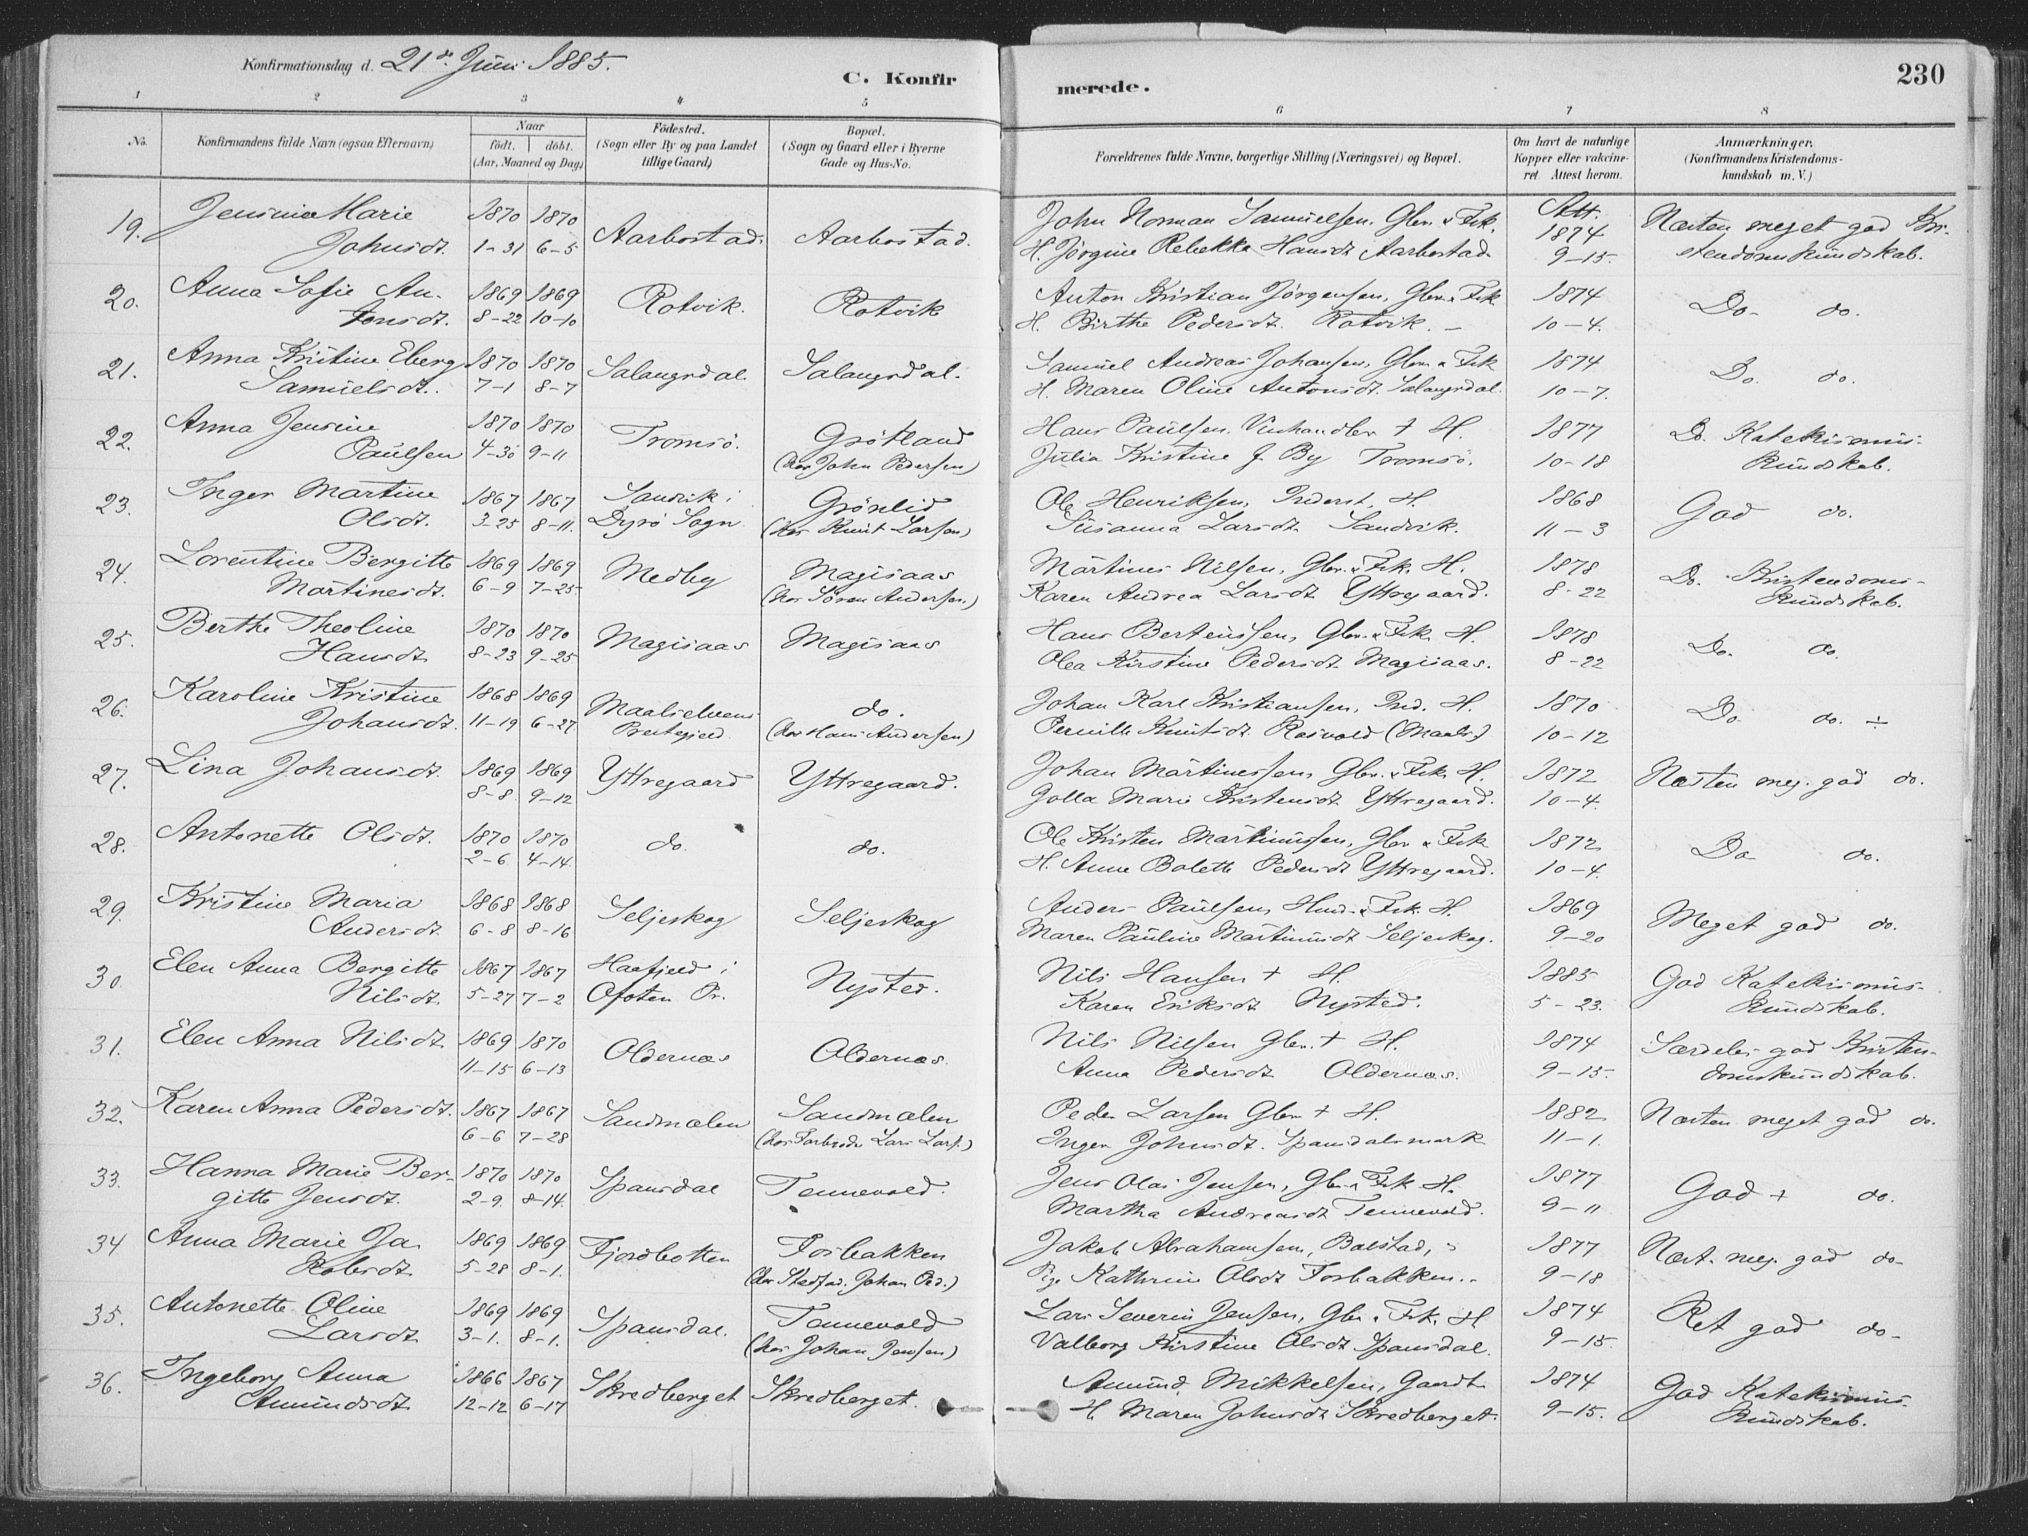 Konfirmationsdag d. 21de Juni 1885.
C. Konfirmerede.
230
1 2 3 4 5 6 7 8
No.
Konfirmandens fulde Navn (ogsaa Efternavn)
Naar
födt. döbt.
(Aar, Maaned og Dag)
Födested.
(Sogn eller By og paa Landet
tillige Gaard)
Bopæl.
(Sogn og Gaard eller i Byerne
Gade og Hus-No.
Forældrenes fulde Navne, borgerlige Stilling (Næringsvei) og Bopæl.
Om havt de naturlige
Kopper eller vakcine-
ret Attest herom.
Anmærkninger.
(Konfirmandens Kristendoms-
kundskab m. V.)
19. Jensine Marie 1870 1870 Aarbostad. Aarbostad. John Norman Samuelsen. Gbr. & Fsk. Att. 1874 Næsten meget god Kri-
Johnsdt. 1-31 6-5 H. Jörgine Rebekka Hansdt Aarbostad. 9-15. stendomskundskab.
20. Anna Sofie An- 1869 1869 Rotvik. Rotvik Anton Kristian Jörgensen, Gbr. & Fsk 1874 Do. do.
tonsdt. 8-22 10-10 H. Birthe Pedersdt. Rotvik. 10-4.
21. Anna Kristine Eberg 1870 1870 Salangsdal. Salangsdal. Samuel Andreas Johansen, Gbr. & Fsk 1874 Do. do.
Samuelsdt. 7-1 8-7 H. Maren Oline Antonsdt. Salangsdal. 10-7.
22. Anna Jensine 1870 1870 Tromsö. Grötland Hans Paulsen. Vinhandler + H. 1877 Do. Katekismus-
Paulsen 4-30 9-11 (hos John Pedersen) Julia Kristine f. By Tromsö. 10-18 kundskab.
23. Inger Martine 1867 1867 Sandvik i Grönlid Ole Henriksen, Inderst, H. 1868 God do.
Olsdt. 3-25 8-11. Dyrö Sogn. (hos Knut Larsen) Susanna Larsdt. Sandvik. 11-3
24. Lorentine Bergitte 1869 1869 Medby Magisaas Martines Nilsen, Gbr. & Fsk. H. 1878 Do. Kristendoms-
Martinesdt. 6-9 7-25 (hos Sören Andersen.) Karen Andrea Larsdt Yttregaard. 8-22 kundskab.
25. Berthe Theoline 1870 1870 Magisaas Magisaas Hans Berteussen, Gbr. & Fsk. H. 1878 Do. do.
Hansdt. 8-23 9-25 Olea Kirstine Pedersdt Magisaas. 8-22
26. Karoline Kristine 1868 1869 Maalselvens do. Johan Karl Kristiansen, Ind. H. 1870 Do do. ÷
Johansdt. 11-19 6-27 Prestegjeld. (hos Hans Andersen) Pernille Knutsdt. Rosvold (Maals.) 10-12
27. Lina Johansdt. 1869 1869 Yttregaard Yttregaard. Johan Martinessen, Gbr. & Fsk. H. 1872 Næsten meg. god do.
8-8 9-12 Golla Marie Kristensdt Yttregaard. 10-4.
28. Antonette Olsdt. 1870 1870 do. do. Ole Kristen Martinussen, Gbr. & Fsk 1872 Do do.
2-6 4-14. H. Anne Bolette Pedersdt Yttregaard. 10-4.
29. Kristine Maria 1868 1868 Seljeskog Seljeskog Anders Paulsen, Husm. & Fsk. H. 1869 Meget god do.
Andersdt. 6-8 8-16 Maren Pauline Martinusdt Seljeskog. 9-20
30. Elen Anna Bergitte 1867 1867 Haafjeld i Nysted. Nils Hansen + H. 1885 God Katekismus-
Nilsdt. 5-27 7-2 Ofoten Pr. Karen Eriksdt Nysted. 5-23. kundskab.
31. Elen Anna Nilsdt. 1869 1870 Oldernæs Oldernæs. Nils Nilsen Gbr. + H. 1874 Særdeles god Kristen-
11-15 6-13 Anna Pedersdt Oldernæs. 9-15. domskundskab.
32. Karen Anna Pedersdt. 1867 1867 Sandmælen Sandmælen Peder Larsen Gbr + H. 1882 Næsten meget god do.
6-6 7-28 (hos Farbroder Lars Lars.) Inger Johnsdt. Spansdalsmark 11-1.
33. Hanna Marie Ber- 1870 1870 Spansdal Tennevold. Jens Olai Jensen, Gbr. & Fsk H. 1877 God + do.
gitte Jensdt. 2-9. 8-14. Martha Andreasdt Tennevold. 9-11
34 Anna Marie Ja- 1869 1869 Fjordbotten Fosbakken Jakob Abrahamsen, Balstad, 1877 Næst. meg. god do.
kobsdt. 5-28 8-1. (hos Stedfad. Johan Ped.) Pige Kathrine Olsdt Fosbakken. 9-18
35. Antonette Oline 1869 1869 Spansdal. Tennevold Lars Severin Jensen, Gbr. & Fsk. H. 1874 Ret god do.
Larsdt 3-1. 8-1. (hos Johan Jensen) Valborg Kirstine Olsdt Spansdal. 9-15.
36. Ingeborg Anna 1866 1867 Skredberget Skredberget. Amund Mikkelsen, Gaardb. 1874 God Katekismus-
Amundsdt 12-12 6-17 H. Maren Johnsdt Skredberget. 9-15. kundskab.